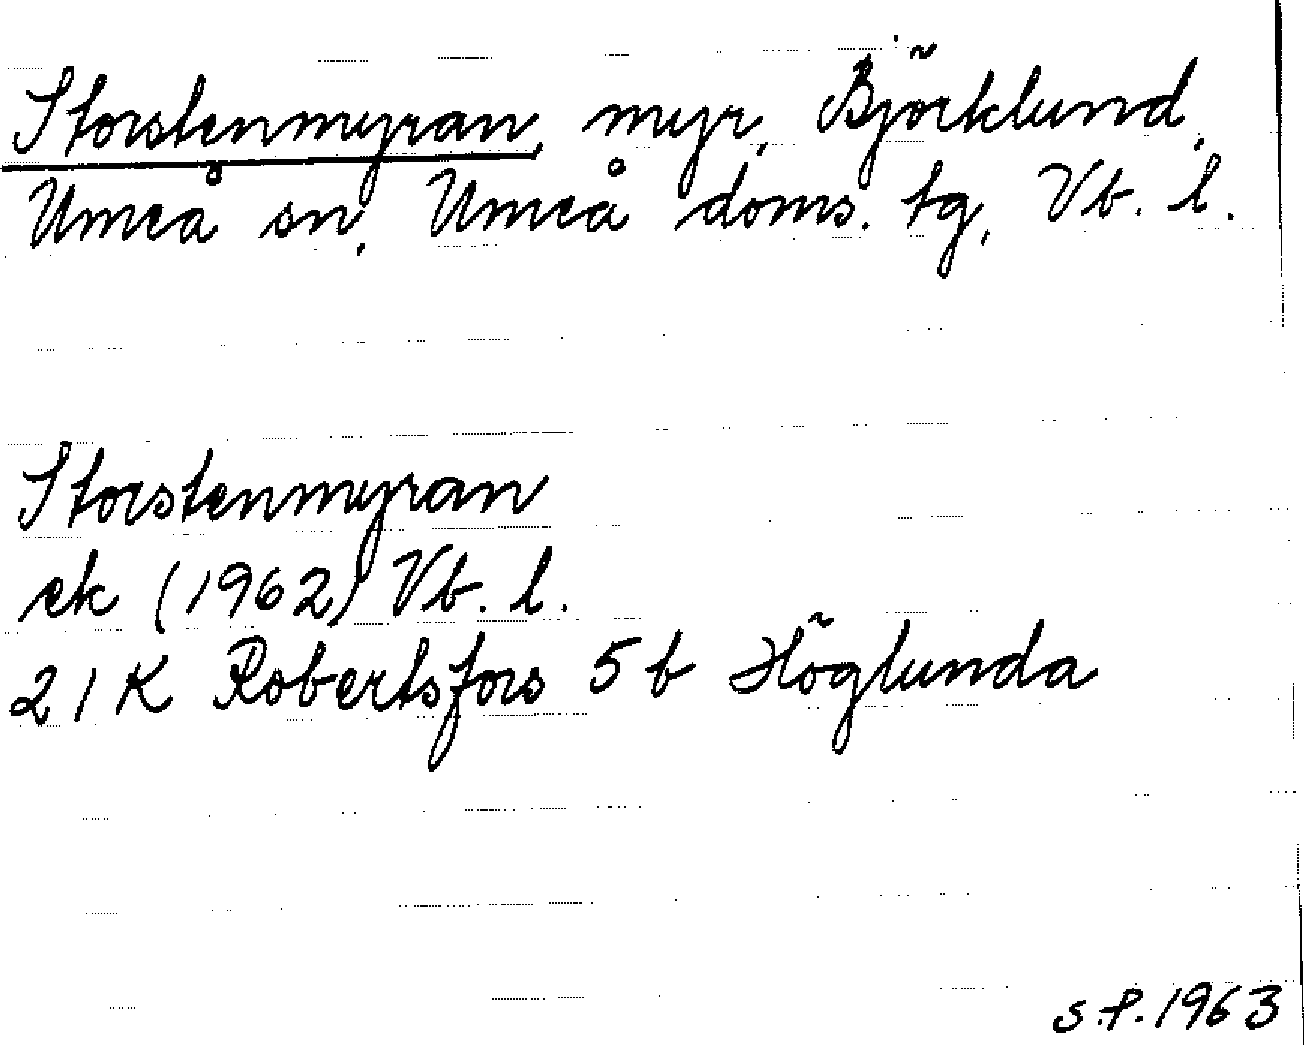 Storstenmyran, myr, Björklund,
Umeå sn, Umeå doms. tg, Vb. l.
Storstenmyran
ek (1962) Vb. l.
21 K Robertsfors 5 b Höglunda
S.P. 1963